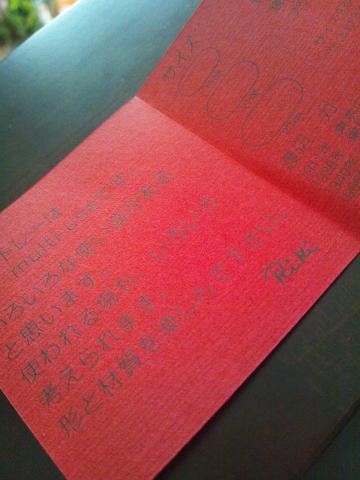 サイズ
トレーは
multi-useです。
いろいろな使い道がある
と思います。
使われる場も、いろいろ
考えられます。
形と材質を楽しんで下さい。
Riki